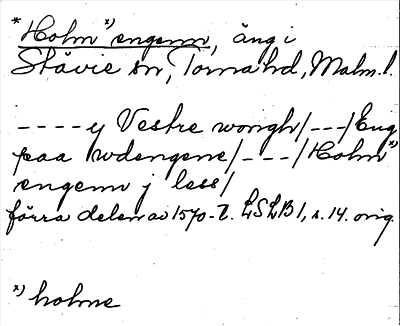 * Holm*) engenn, äng i
Stävie sn, Torna hd, Malm. l.
---- y Vestre wongh/---/Eng
paa wdengene/---/Holm*)
engenn j less/
förra delen av 1570-t. LSLB 1, s. 14. orig.
*) holme